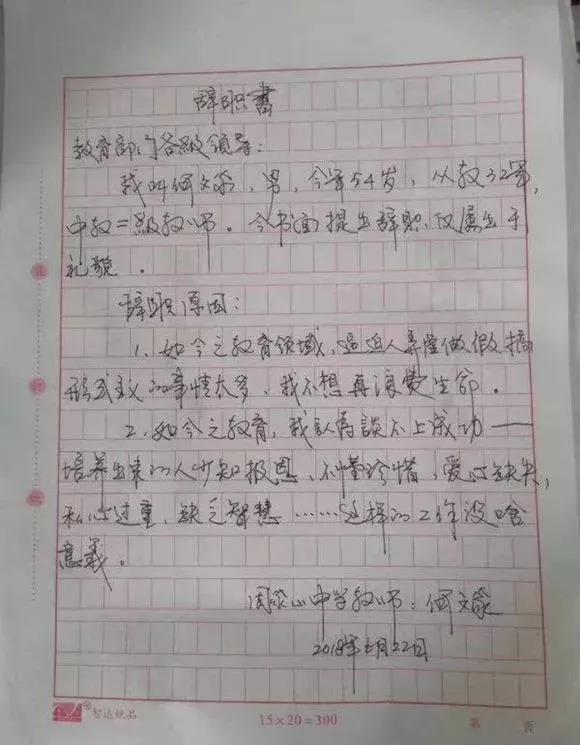 辞职书
教育部门各级领导：
我叫何文豪，男，今年54岁，从教32年，
中教二级教师。今书面提出辞职，仅属出于
礼貌。
辞职原因：
1、如今之教育领域，逼迫人专搞做假搞
形式主义的事情太多，我不想再浪费生命。
2、如今之教育，我认为谈不上成功——
培养出来的人少知报恩、不懂珍惜，爱心缺失，
私心过重，缺乏智慧……这样的工作没啥
意义。
中学教师：何文豪
2018年 月22日
智达纸品
15×20=300
第 页